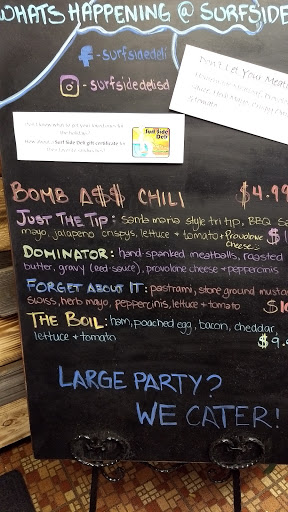 WHATS HAPPENING @ SURFSIDE
- surfsidedeli
- surfsidedelisd
Don't Let Your Meat
Surf Side Deli
Surf Side Deli gift certificate
BOMB A$$ CHILI $4.99
JUST THE TIP: Santa maria style tri tip, BBQ
mayo, jalapeno crispys, lettuce + tomato + Provolone
cheese
DOMINATOR: hand-spanked meatballs, roasted
butter, gravy (red-sauce), provolone cheese + pepperoncinis
FORGET ABOUT IT: pastrami, stone ground
swiss, herb mayo, pepperoncinis, lettuce + tomato
THE BOIL: ham, poached egg, bacon, cheddar,
lettuce + tomato $9.
LARGE PARTY?
WE CATER!